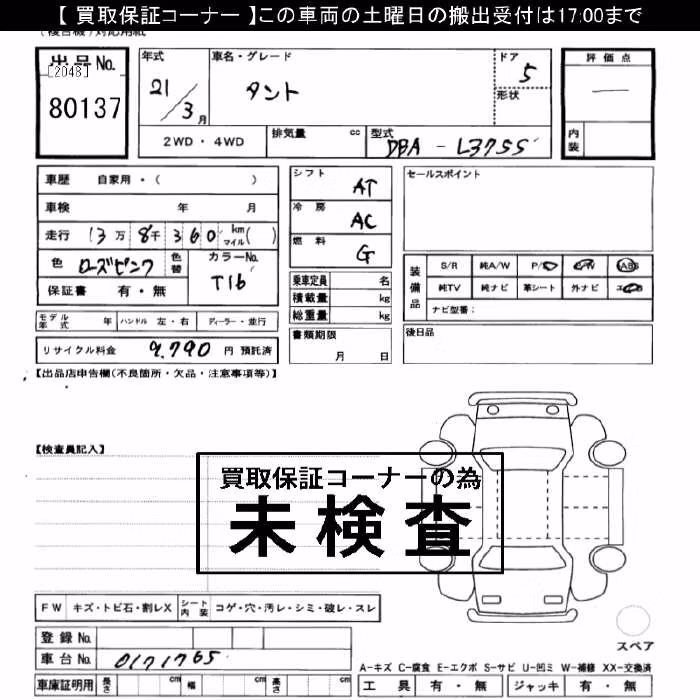 【 買取保証コーナー 】この車両の土曜日の搬出受付は17:00まで
(複合機)対応用紙
出品No.
[2048]
80137
年式
21/3月
車名・グレード
タント
ドア
5
形状
評価点
—
内装
2WD・4WD
排気量 cc
型式 DBA-L375S
車歴 自家用・( )
車検 年 月
走行 13万8千360 km マイル( )
色 ローズピンク 色替
カラーNo. T16
保証書 有・無
シフト AT
冷房 AC
燃料 G
乗車定員 名
積載量 kg
総重量 kg
セールスポイント
装備品
S/R 純A/W P/S P/W ABS
純TV 純ナビ 革シート 外ナビ エアB
ナビ型番:
モデル年式 年 ハンドル 左・右 ディーラー・並行
リサイクル料金 9,790 円 預託済
書類期限
月 日
後日品
【出品店申告欄(不良箇所・欠品・注意事項等)】
【検査員記入】
買取保証コーナーの為
未検査
FW キズ・トビ石・割レX シート内装 コゲ・穴・汚レ・シミ・破レ・スレ
登録No.
車台No. 0171765
スペア
A-キズ C-腐食 E-エクボ S-サビ U-凹ミ W-補修 XX-交換済
車庫証明用 長さ cm 幅 cm 高さ cm
工具 有・無 ジャッキ 有・無